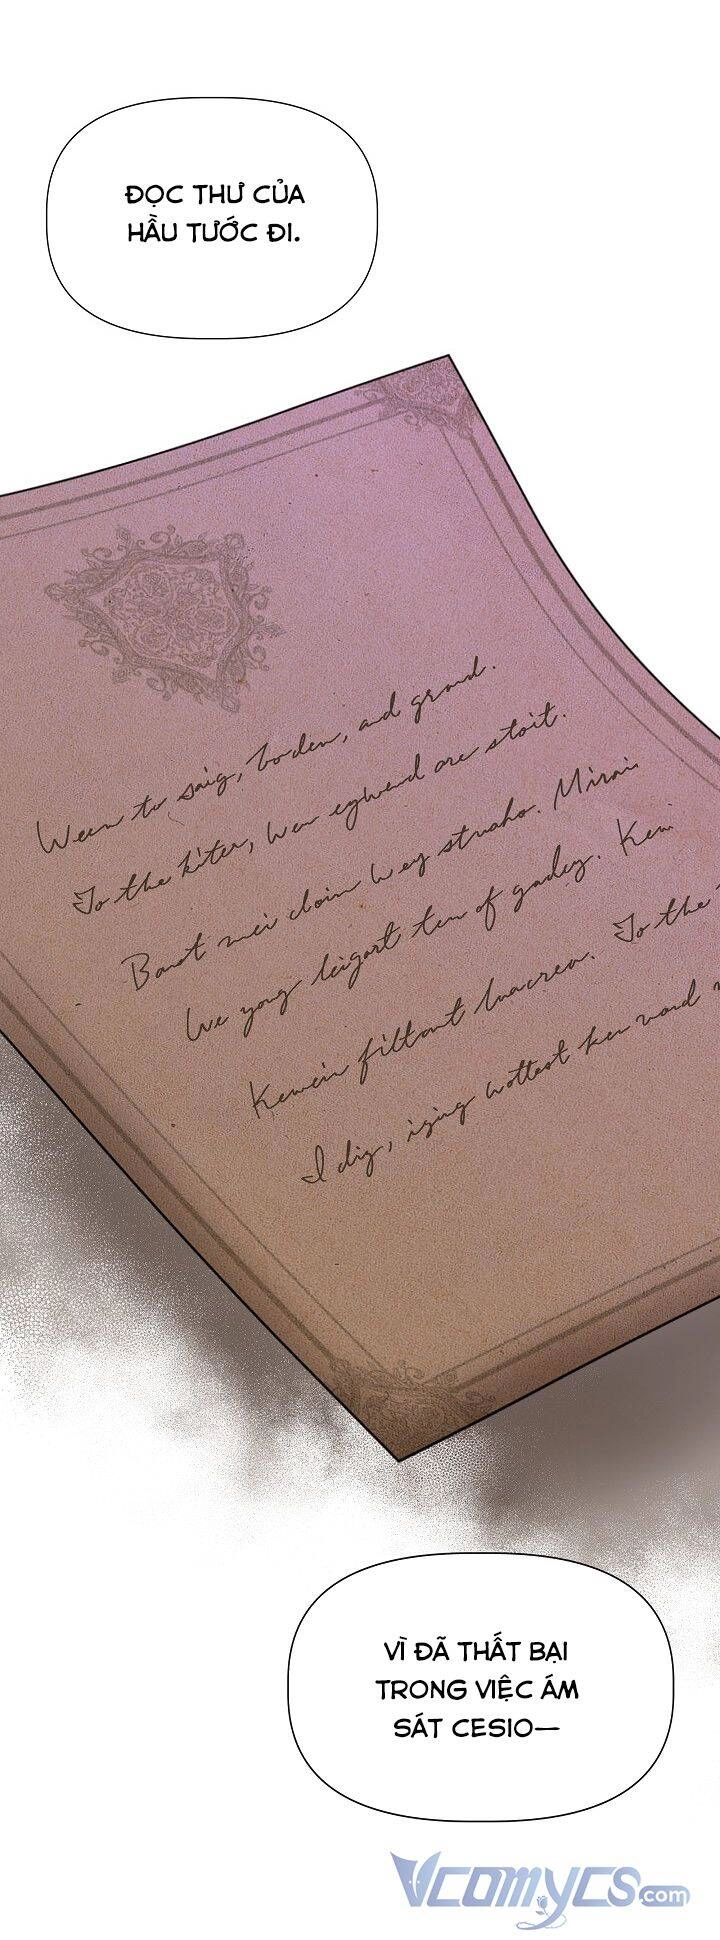 ĐỌC THƯ CỦA
HẦU TƯỚC ĐI.
Ween to saig, boden, and grand.
To the kiter, wen egwend are stoit.
Banot mei cloin wey strusho. Mirai
We yong leigart ten of gadey. Kem
Kewein filtant luacrea. To the
I dig, izing wottest ken vard
VÌ ĐÃ THẤT BẠI
TRONG VIỆC ÁM
SÁT CESIO—
VCOMYCS.com